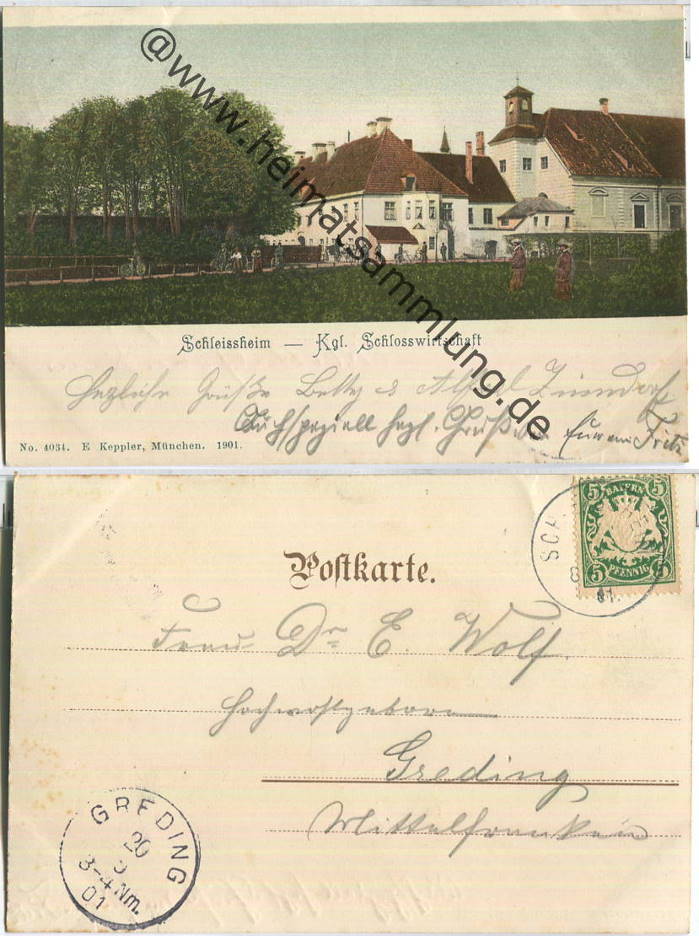 @www.heimatsammlung.de
Schleissheim — Kgl. Schlosswirtschaft
Herzliche Grüße Betty & Alfred
Auch speziell herzl. Gruß Fritz
No. 4034. E Keppler, München. 1901.
5 BAYERN 5
5 PFENNIG 5
SCH
8
Postkarte.
Frau Dr. E. Wolf.
Hochwohlgeboren
Greding
Mittelfranken
GREDING
20
9
3-4 Nm.
01